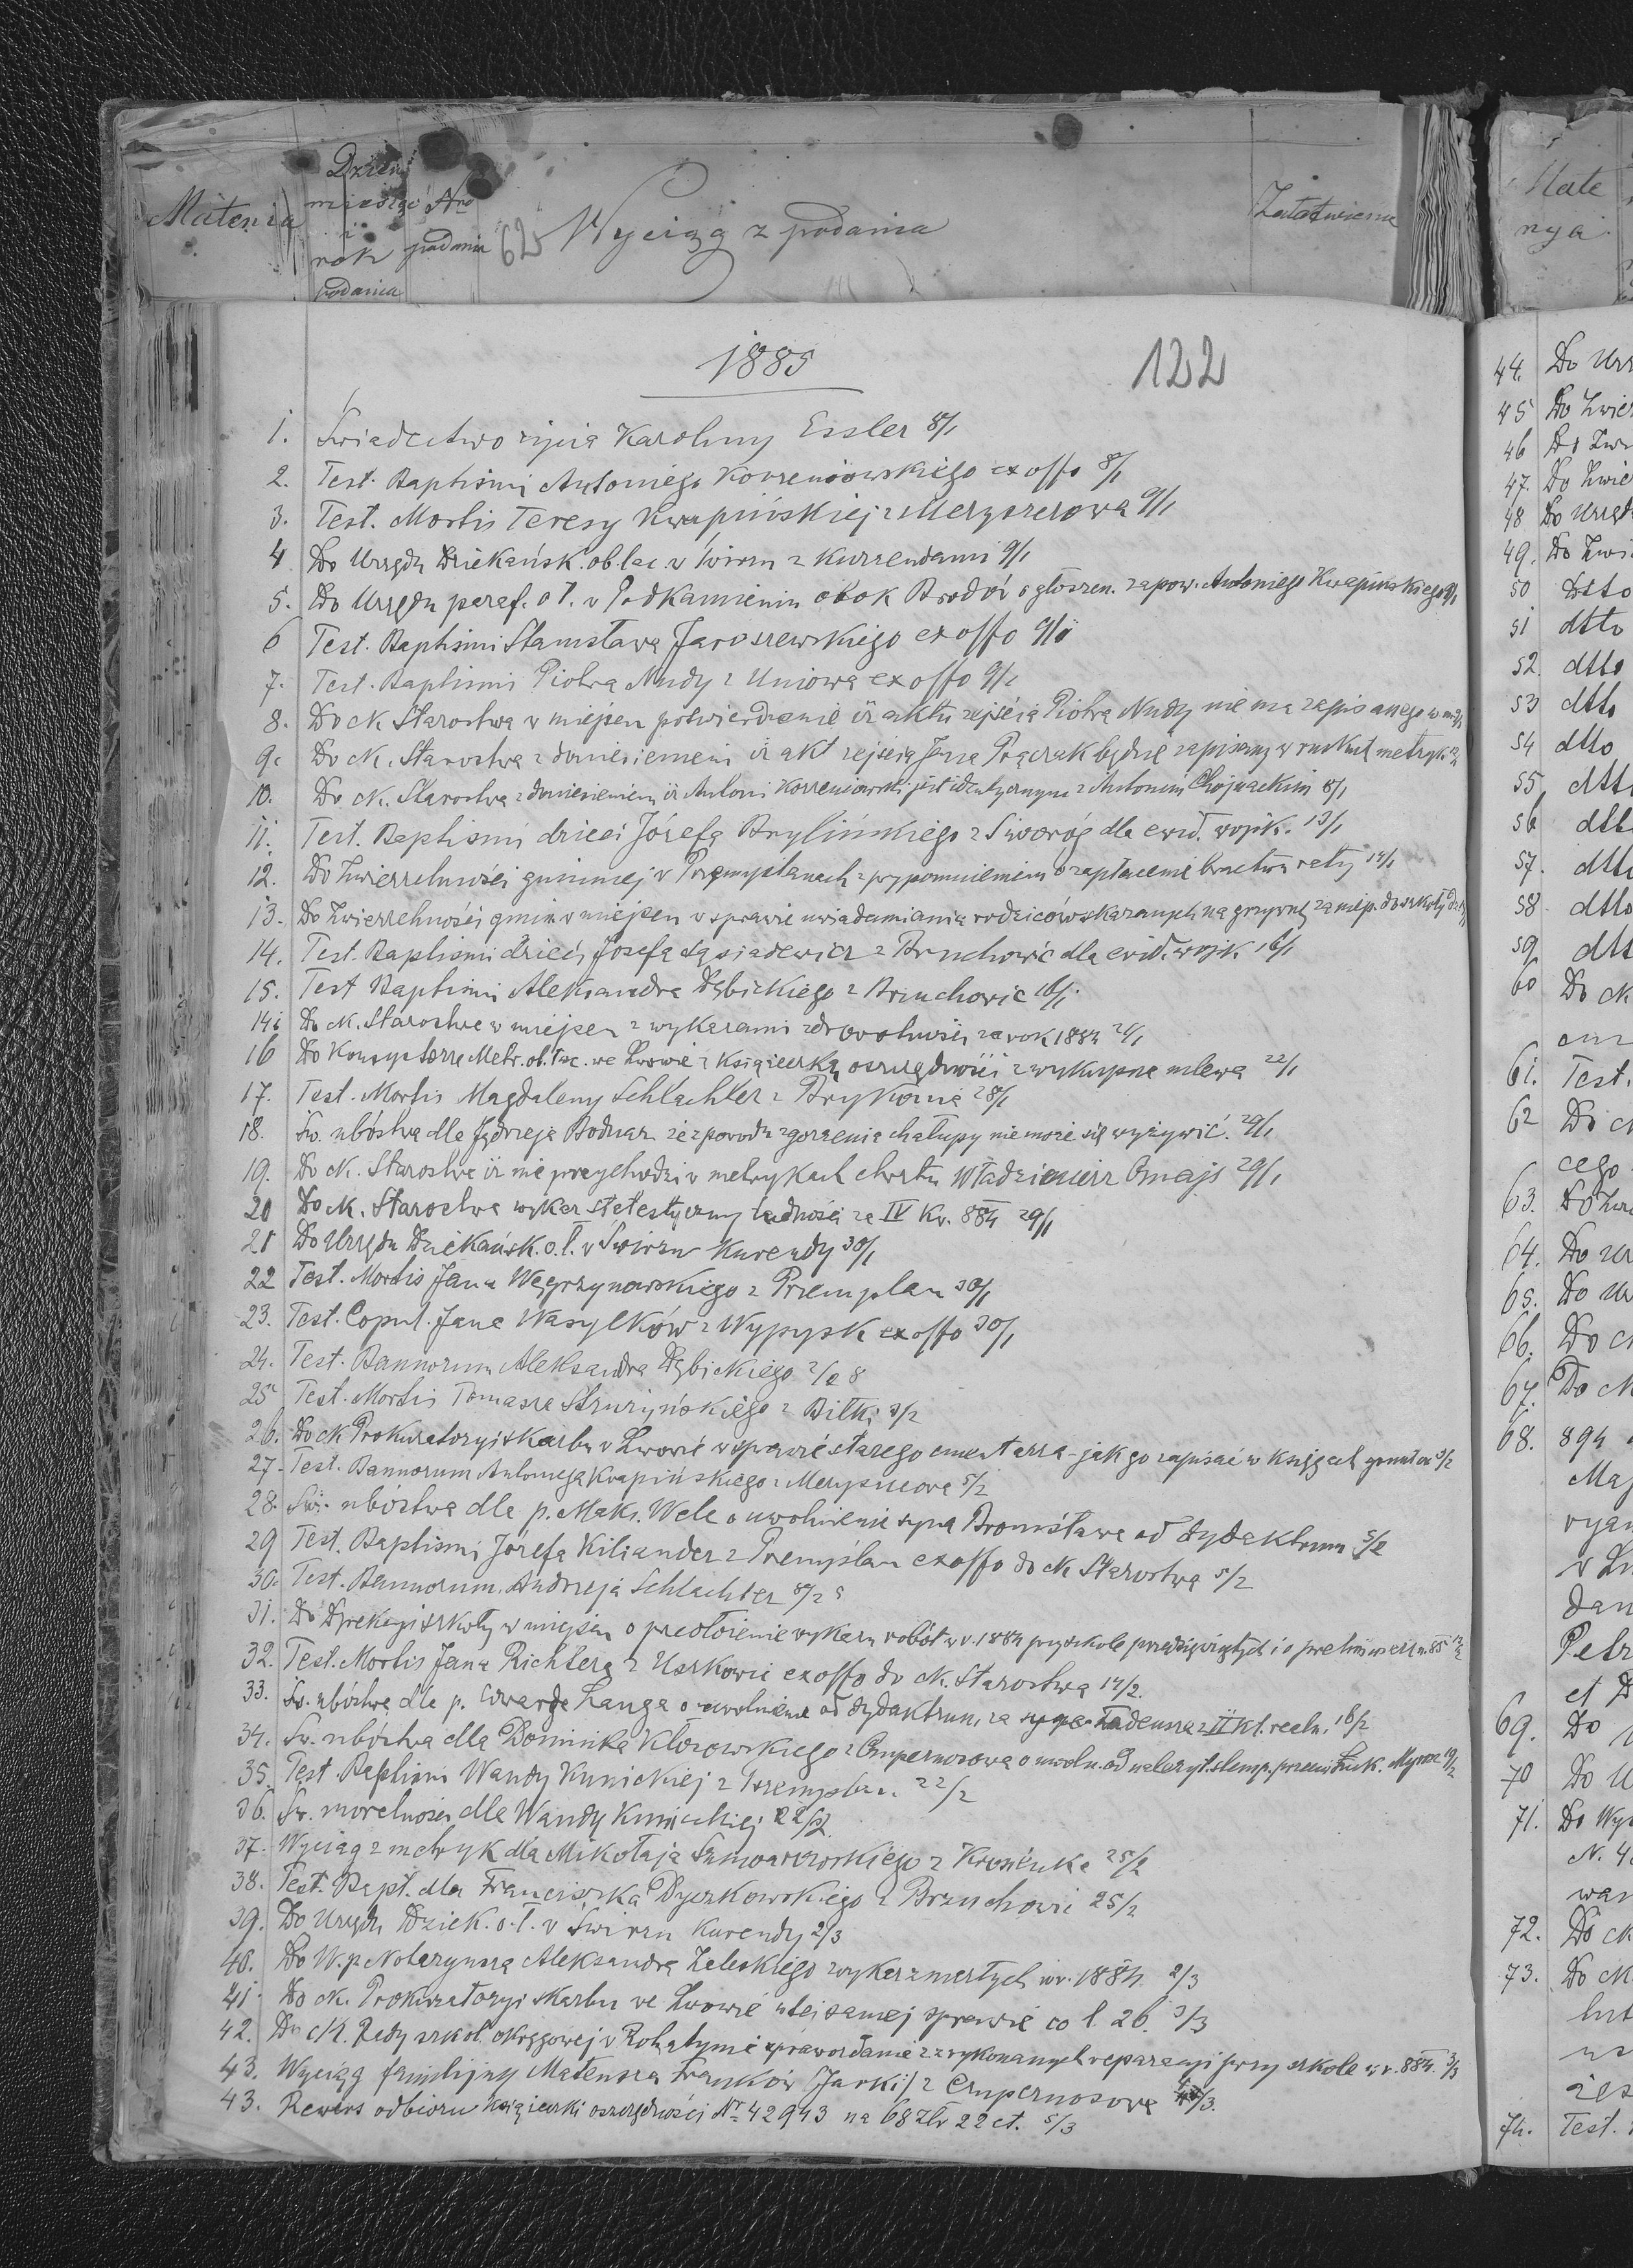 Materia
Dzień
miesiąc
i
rok
podania
Nro
podania
62
Wyciąg z podania
Załatwienie
Mate
rya
1885
122
1. Świadectwo życia Karoliny Essler 8/1
2. Test. Baptismi Antoniego Korzeniowskiego ex offo 8/1
3. Test. Mortis Teresy Kwapińskiej z Merzyszczowa 9/1
4 Do Urzędu Dziekańsk. ob. łac. w Świrzu z Kurrendami 9/1
5. Do Urzędu paraf. o ł. w Podkamieniu obok Brodów o głoszen. zapow. Antoniego Kwapińskiego 9/1
6 Test. Baptismi Stanisława Jaroszewskiego ex offo 9/1
7. Test. Baptismi Piotra Nudy z Uniowa ex offo 9/1
8. Do ck Starostwa w miejscu potwierdzenie iż aktu zejścia Piotra Nudy nie ma zapisanego w
9. Do ck. Starostwa z doniesieniem iż akt zejścia Jana Prączak będzie zapisany w ruskich metryk.
10. Do ck. Starostwa z doniesieniem iż Antoni Korzeniowski jest identycznym z Antonim Chojnackim 8/1
11. Test. Baptismi dzieci Józefa Brylińskiego z Siworóg dla ewid. wojsk. 13/1
12. Do Zwierzchności gminnej w Przemyślanach z przypomnieniem o zapłacenie bractwu raty 14/1
13. Do Zwierzchności gmin w miejscu w sprawie uwiadamiania rodziców skazanych na grzywnę za niep. do szkoły
14. Test. Baptismi dzieci Józefa Sąsiadewicz z Brzuchowic dla ewid. wojsk. 16/1
15. Test Baptismi Aleksandra Dębickiego z Brzuchowic 16/1
14i Do ck. Starostwa w miejscu z wykazami zdrowotności za rok 1884 21/1
16 Do Konsystorza Metr. ob. łac. we Lwowie z książeczką oszczędności z wykupna mlewa 22/1
17. Test. Mortis Magdaleny Schlachter z Brykonia 28/1
18. Św. ubóstwa dla Jędrzeja Bodnar że z powodu zgorzenia chałupy nie może się wyżywić. 29/1
19. Do ck. Starostwa iż nie przychodzi w metrykach chrztu Władzimierz Omajs 29/1
20 Do ck. Starostwa wykaz statestyczny ludności za IV Kw. 884 29/1
21 Do Urzędu Dziekańsk. o. ł. w Świrzu Kurendy 30/1
22 Test. Mortis Jana Węgrzynowskiego z Przemyślan 30/1
23. Test. Copul. Jana Wasylków z Wypysk ex offo 30/1
24. Test. Bannorum Aleksandra Dębickiego 2/2 8
25 Test. Mortis Tomasza Struzyńskiego z Biłki 3/2
26. Do ck Prokuratoryi skarbu w Lwowie w sprawie starego cmentarza - jak go zapisać w księgach gruntow 3/2
27. Test. Bannorum Antoniego Kwapińskiego z Meryszczowa 5/2
28. Św. ubóstwa dla p. Maks. Wele o uwolnienie syna Bronisława od dydaktrum 5/2
29 Test. Baptismi Józefa Kiliander z Przemyślan ex offo do ck Starostwa 5/2
30. Test. Bannorum Andrzeja Schlachter 8/2
31. Do Dyrekcyi szkoły w miejscu o przedłożenie wykazu robót w r. 1884 przy szkole przedsięwziętych i o preliminarz n. 85
32. Test. Mortis Jana Richtera z Uszkowic ex offo do ck. Starostwa 14/2.
33. Św. ubóstwa dla p. Edwarda Langa o uwolnienie od dydaktrum, za syna Tadeusza z II kl. realn. 16/2
34. Św. ubóstwa dla Dominika Kłosowskiego z Ciemperzowa o uwoln. od należyt. stemp. przeciw Łuk. Myrona 19/2
35. Test. Baptismi Wandy Kunickiej z Przemyślan. 22/2
36. Św. moralności dla Wandy Kunickiej 22/2
37. Wyciąg z metryk dla Mikołaja Szuwarowskiego z Krosienka 25/2
38. Test. Bapt. dla Franciszka Dyczkowskiego z Brzuchowic 25/2
39. Do Urzędu Dziek. o. ł. w Świrzu Kurendy 2/3
40. Do W. p Notaryusza Aleksandra Zaleskiego wykaz zmarłych w r. 1884. 2/3
41. Do ck. Prokuratoryi skarbu we Lwowie w tej samej sprawie co l. 26. 3/3
42. Do ck. Rady szkol. okręgowej w Rohatynie sprawozdanie z wykonanych reparacyi przy szkole w r. 884. 3/3
43. Wyciąg familijny Mateusza Franków (Jarki) z Ciemperzowa /3.
43. Rewers odbioru książeczki oszczędności Nr 42943 na 68 złr 22 ct. 5/3
44. Do Urz
45 Do Zwier
46 Do Zwi
47. Do Zwie
48 Do Urzęd
49. Do Zwi
50 Dtto
51 dtto
52 dtto
53 dtto
54 dtto
55 dtt
56 dtt
57. dtt
58 dtto
59. dtt
60 Do ck
61. Test.
62 Do c
cego
63. Do Zw
64. Do Ur
65. Do Ur
66. Do c
67. Do ck
68. 894
Maj
ryan
w Lu
dan
Petr
et D
69. Do
70 Do U
71. Do Wys
N. 4
war
72. Do ck
73. Do ck
74. Test.